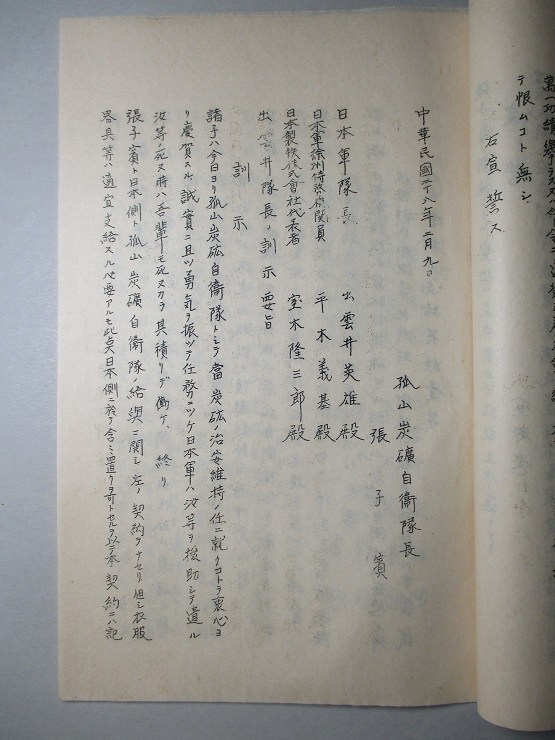 テ恨ムコト無シ
右宣誓ス
中華民國二十八年二月九日
孤山炭礦自衛隊長
張子賓
日本軍隊長 出雲井英雄殿
日本軍徐州特務機関員 平木義基殿
日本製鉄株式會社代表者 室木隆三郎殿
出雲井隊長ノ訓示要旨
訓示
諸子ハ今日ヨリ孤山炭砿自衛隊トシテ當炭砿ノ治安維持ノ任ニ就クコトヲ衷心ヨ
リ慶賀スル誠實ニ且ツ勇気ヲ振ツテ任務ヲツケ日本軍ハ汝等ヲ援助シテ遣ル
汝等ノ死ヌ時ハ吾輩モ死ヌカラ其積リデ働ケ 終リ
張子賓ト日本側ト孤山炭礦自衛隊ノ給與ニ関シ左ノ契約ヲナセリ但シ衣服
器具等ハ適宜支給スル必要アルモ此点日本側ニ於テ含ミ置クヲ可トセルヲ以テ本契約ニハ記